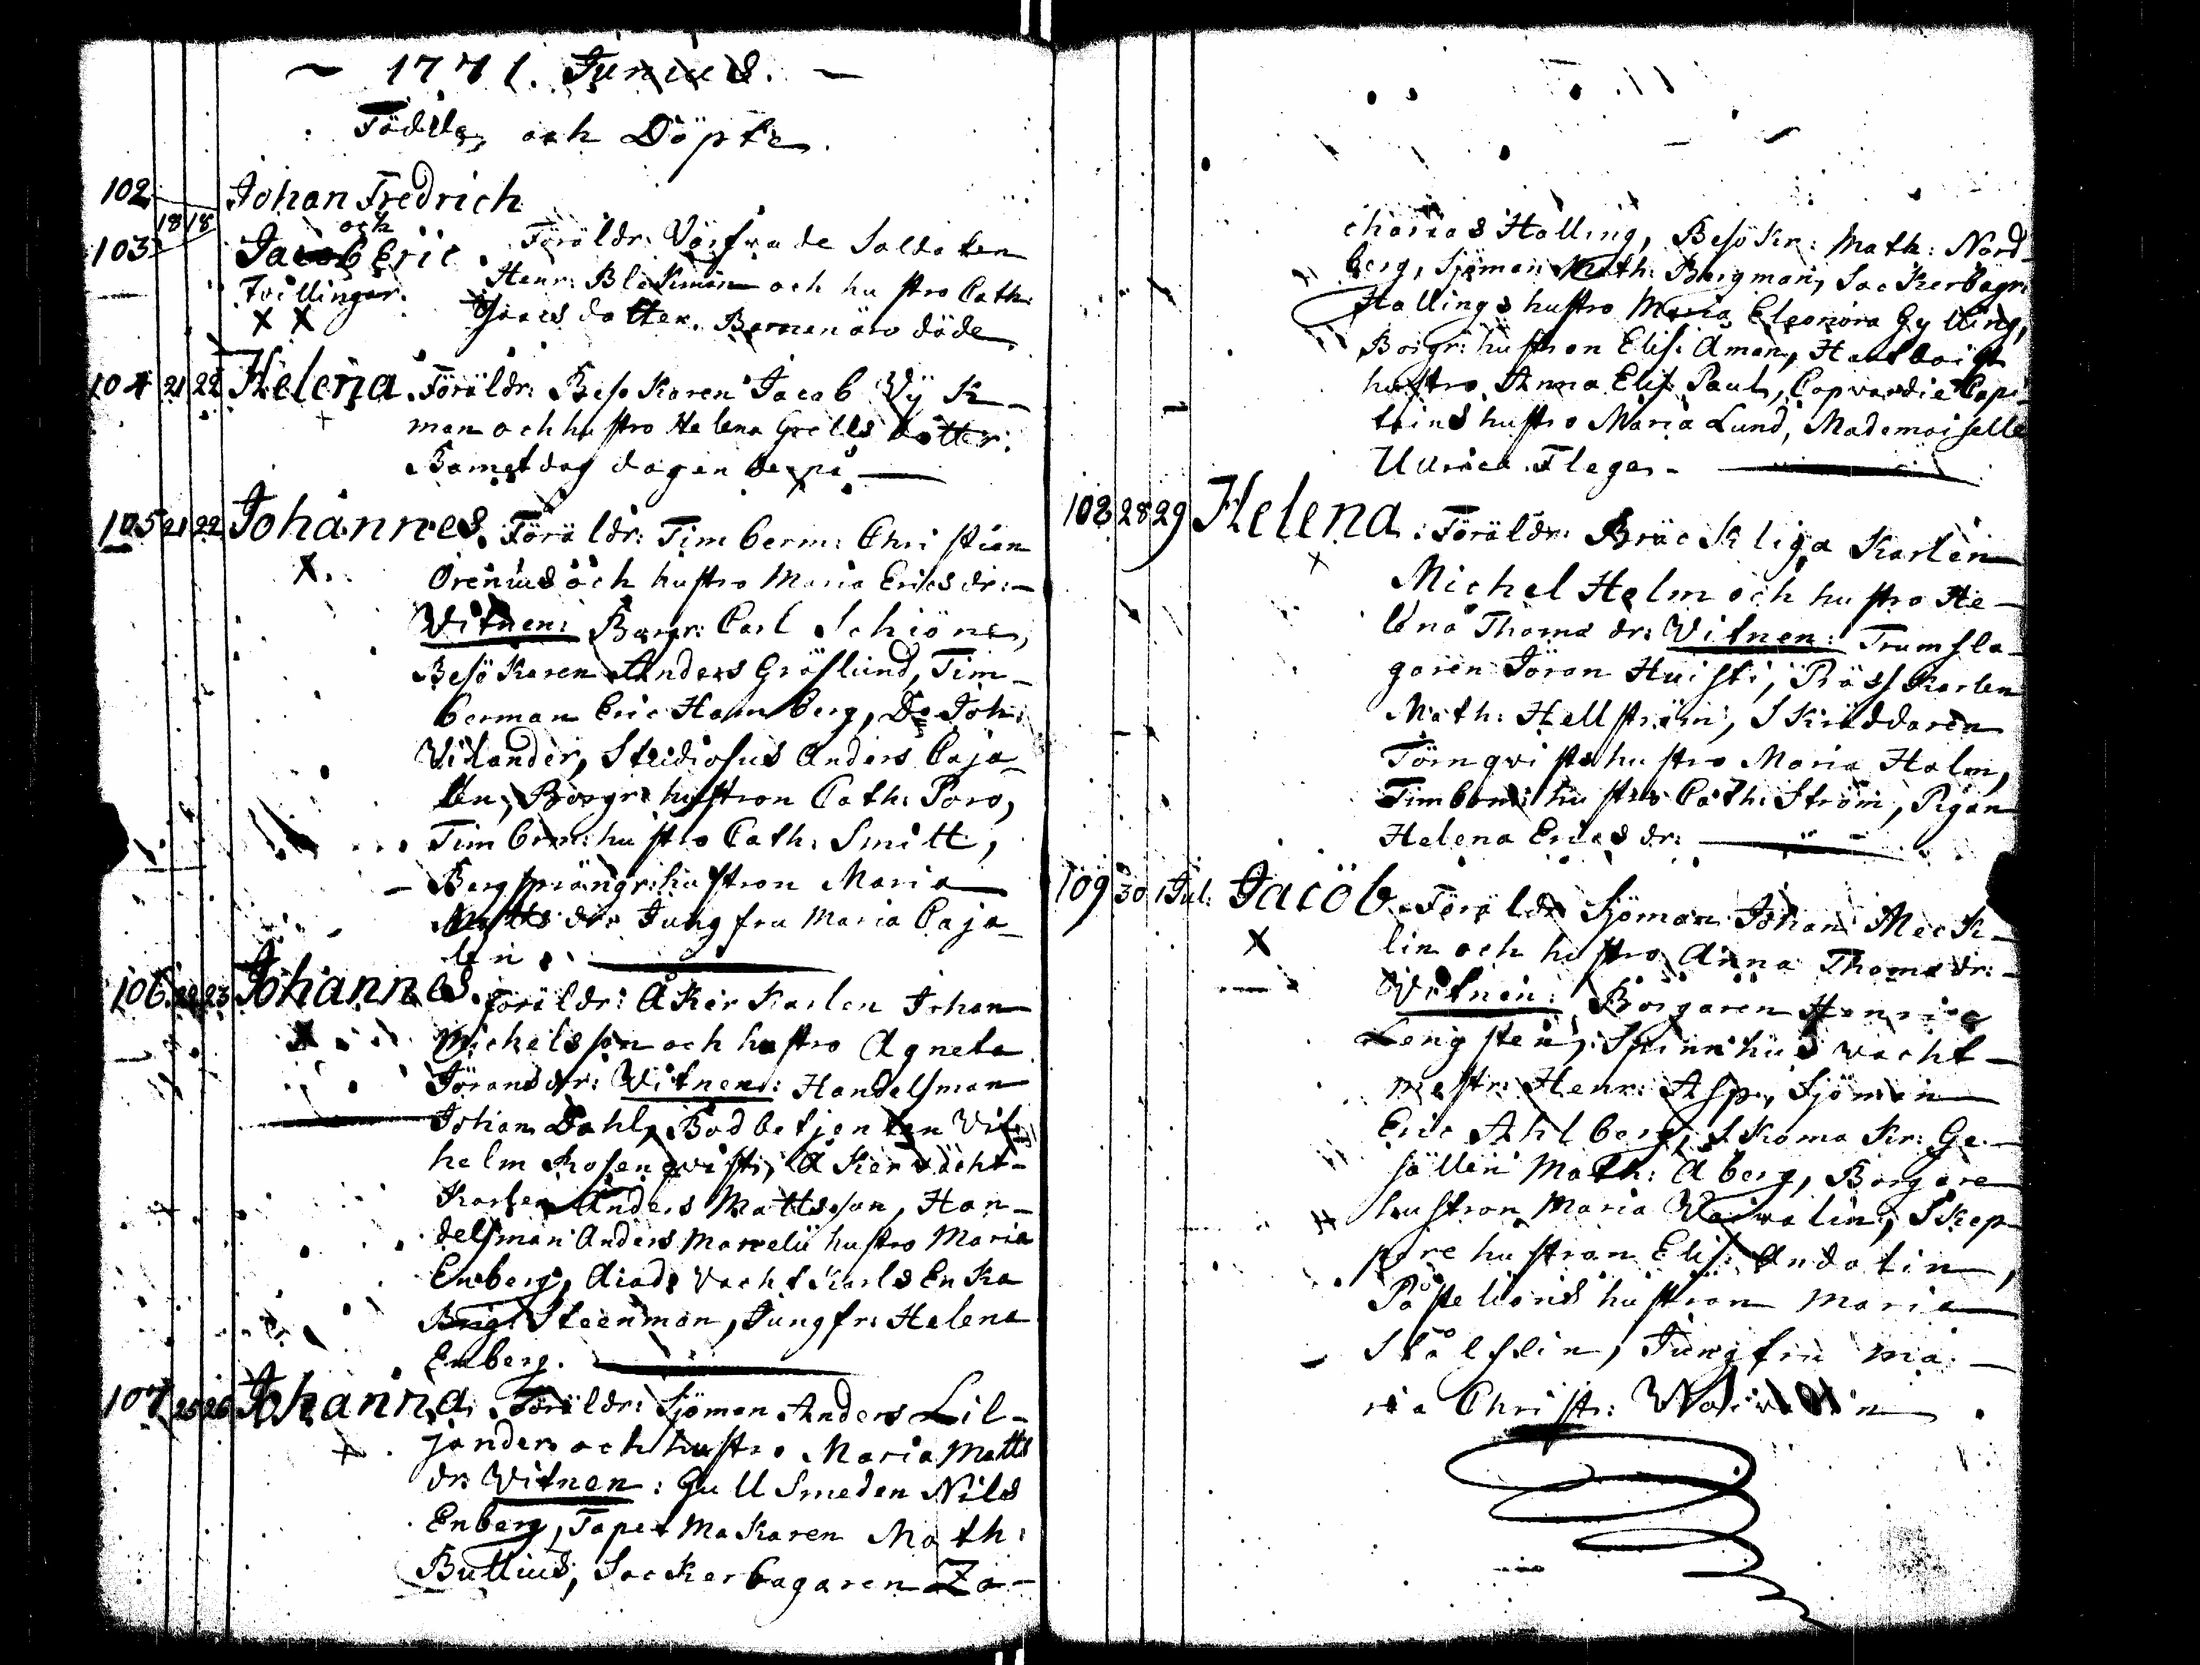 ~ 1771. Junius. ~
Födde, och Döpte
102 Johan Fredrich
18 18 och
103 Jacob Eric. Föräldr: Värfvade Soldaten
Tvillingar. Henr: Blekman och hustro Cath:
X X dotter. Barnen äro döde
104 21 22 Helena. Föräldr: Besökaren Jacob Wyk-
man och hustro Helena Grelsdotter.
dagen
105 21 22 Johannes. Föräldr: Timberm: Christian
X. Orenius och hustro Maria Ericsdr:
Witnen: Borgr: Carl Schiöne,
Besökaren Anders Gröslund, Tim-
berman Eric Hamberg, Do Joh:
Vilander, Studiosus Anders Caja-
len, Borgr: hustron Cath: Poro,
Timberm: hustro Cath: Smitt,
Bergsprängr: hustron Maria
Matts dr: Jungfru Maria Caja-
len.
106 22 23 Johannes. Föräldr: Åkerkarlen Johan
X Michelsson och hustro Agneta
Jöransdr: Witnen: Handelsman
Johan Dahl, Bodbetjenten Wil-
helm Rosenqvist, Åker
Karlen Anders Mattsson, Han-
delsman Anders Marcelii hustro Maria
Enberg, vachtKarls Enka
Brigt Steenman, Jungfr: Helena
Enberg.
107 25 26 Johanna. Föräldr: Sjöman Anders Lil-
jander och hustro Maria Matts
dr: Witnen: Gullsmeden Nils
Enberg, Tapetmakaren Math:
Bullius, Sockerbagaren Za-
charias Halling, Besökr: Math: Nord-
berg, Sjöman Math: Bergman, Sockerbagr:
Hallings hustro Maria Eleonora Gylling,
Borgr: hustron Elis: Aman,
hustro Anna Elis: Paul, Copvardie Capi-
teins hustro Maria Lund, Mademoiselle
Ulrica Fleger.
108 28 29 Helena. Föräldr: Bräckliga Karlen
X Michel Helm och hustro He-
lena Thomædr: Witnen: Trumsla-
garen Jöran Huisti, Råsskarlen
Math: Hellström, Skräddaren
Törnqvists hustro Maria Holm,
Timberm: hustro Cath: Ström, Pigan
Helena Ericsdr:
109 30 1 Jul: Jacob. Föräldr: Sjöman Johan Meck-
X lin och hustro Anna Thomædr:
Witnen: Borgaren Henric
Lengsten, Spinnhus vacht-
mestr: Henr: Asp, Sjöman
Eric Ahlberg, Skomakr: Ge-
sällen Math: Åberg, Borgare
hustron Maria Warvolin, Skep-
pare hustron Elis: Andolin,
hustron Maria
Stålslin, Jungfru Ma-
ria Christ: Warvolin.